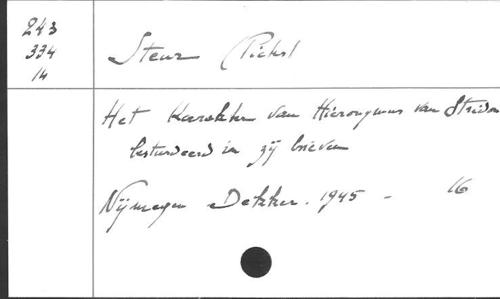 243
334
14
Steur (Pieter)
Het Karakter van Hieronymus van Stridon
bestudeerd in zij brieven
Nijmegen Dekker. 1945 - 16